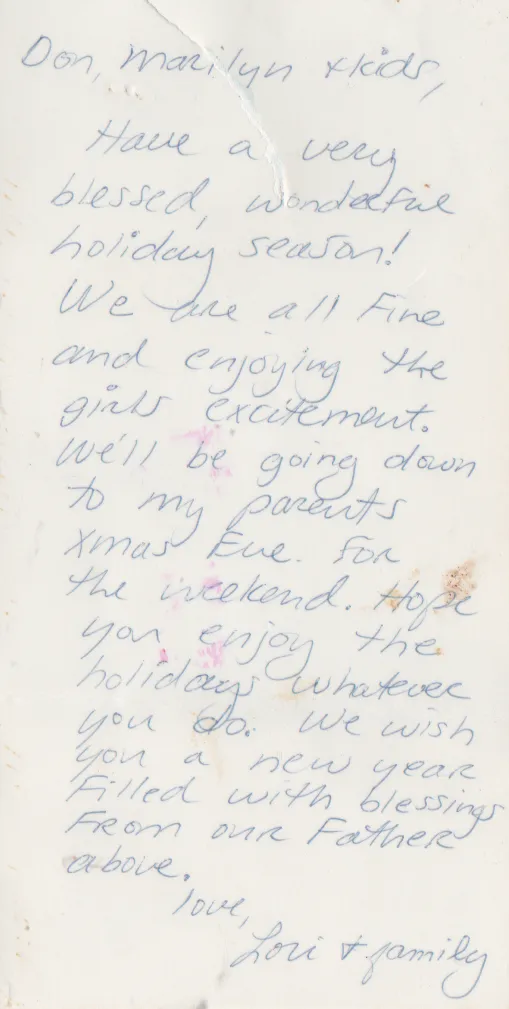 Don, Marilyn + kids,
Have a very
blessed, wonderful
holiday season!
We are all fine
and enjoying the
girls excitement.
We'll be going down
to my parents
Xmas Eve. for
the weekend. Hope
you enjoy the
holidays whatever
you do. We wish
you a new year
Filled with blessings
From our Father
above.
love,
Lori + family